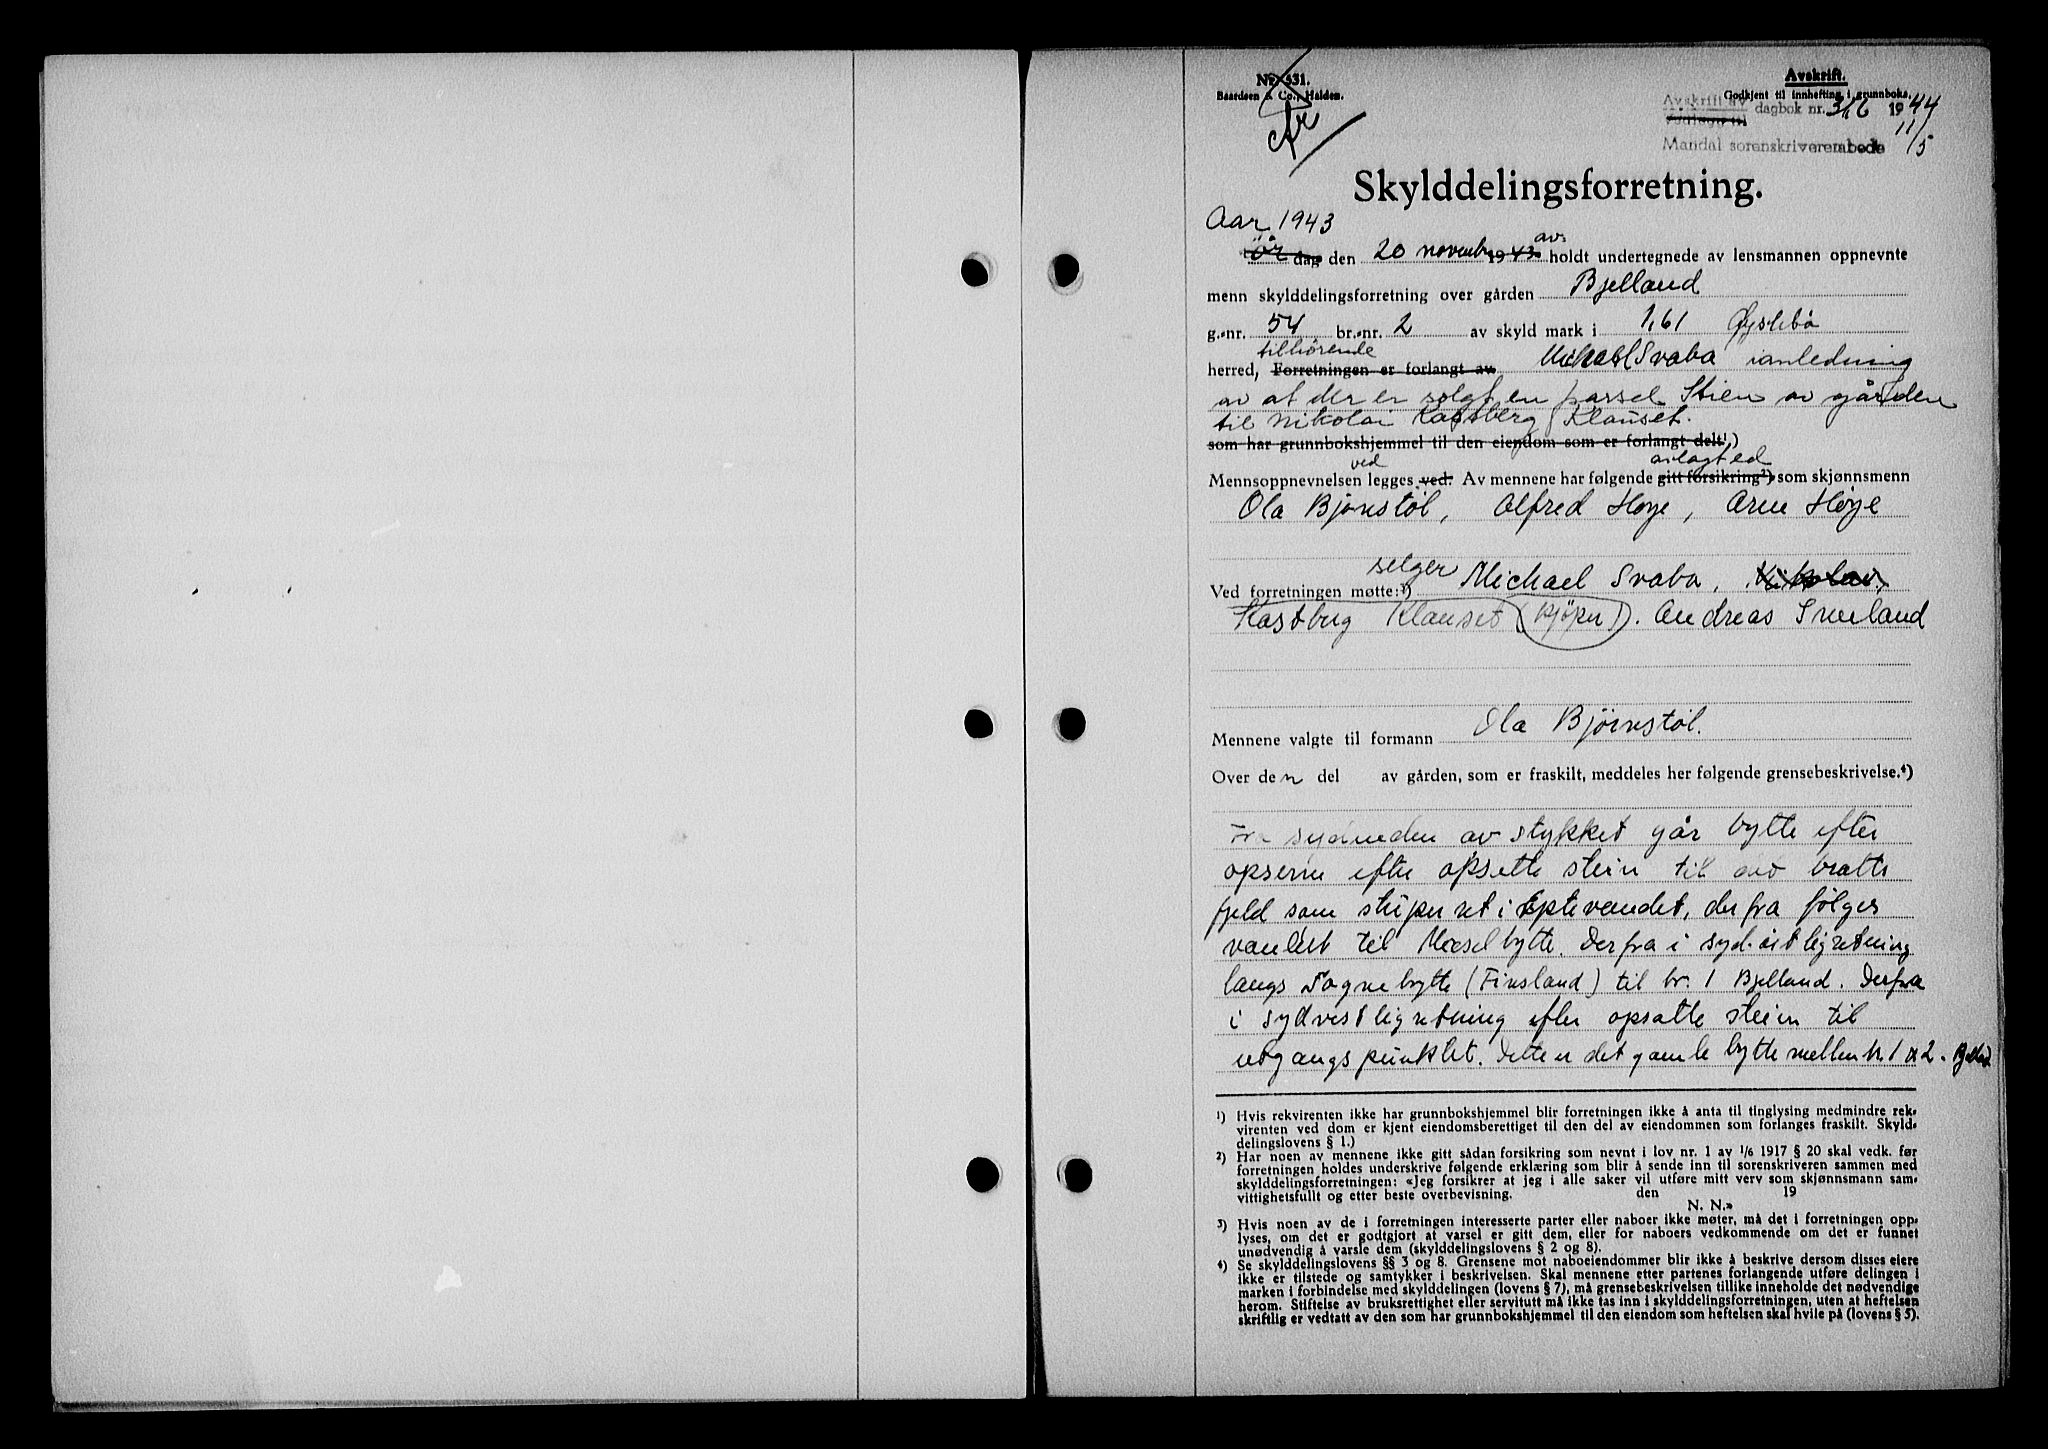 Nr. 631.
Baardsen & Co., Halden.
Avskrift.
Godkjent til innhefting i grunnboka.
Avskrift av dagbok nr. 316 1944
Vedlegg til 11/5
Mandal sorenskriverembede
Skylddelingsforretning.
Aar 1943
År dag den 20 novembr 1943 av holdt undertegnede av lensmannen oppnevnte
menn skylddelingsforretning over gården Bjelland
g.-nr. 54 br.-nr. 2 av skyld mark i 1,61 Øyslebø
tilhörende
herred, Forretningen er forlangt av Michael Svaba i anledning
av at der er solgt en parsel Stien av gården
til Nikolai Kastberg Klauset.
som har grunnbokshjemmel til den eiendom som er forlangt delt¹.)
ved avlagt ed
Mennsoppnevnelsen legges ved. Av mennene har følgende gitt forsikring²) som skjønnsmenn
Ola Bjørnstøl, Alfred Høye, Arne Høye
selger
Ved forretningen møtte:³) Michael Svaba, Nikolai
Kastberg Klauset (kjöper). Andreas Smeland
Mennene valgte til formann Ola Bjørnstøl.
Over de n del av gården, som er fraskilt, meddeles her følgende grensebeskrivelse.⁴)
Fra sydneden av stykket går bytte efter
efter opsatte stein til bratte
fjeld som ret i vandet, derfra følges
vandet til bytte. Derfra i syd-ostlig retning
langs Sognebytte (Finsland) til br. 1 Bjelland. Derfra
i sydvestlig retning efter opsatte stein til
udgangspunktet. Dette er det gamle bytte mellem br. 1 og 2. Bjelland
1) Hvis rekvirenten ikke har grunnbokshjemmel blir forretningen ikke å anta til tinglysing medmindre rek-
virenten ved dom er kjent eiendomsberettiget til den del av eiendommen som forlanges fraskilt. Skyld-
delingslovens § 1.)
2) Har noen av mennene ikke gitt sådan forsikring som nevnt i lov nr. 1 av 1/6 1917 § 20 skal vedk. før
forretningen holdes underskrive følgende erklæring som blir å sende inn til sorenskriveren sammen med
skylddelingsforretningen: «Jeg forsikrer at jeg i alle saker vil utføre mitt verv som skjønnsmann sam-
vittighetsfullt og etter beste overbevisning. den 19
N. N.»
3) Hvis noen av de i forretningen interesserte parter eller naboer ikke møter, må det i forretningen opp-
lyses, om det er godtgjort at varsel er gitt dem, eller for naboers vedkommende om det er funnet
unødvendig å varsle dem (skylddelingslovens § 2 og 8).
4) Se skylddelingslovens §§ 3 og 8. Grensene mot naboeiendommer blir ikke å beskrive dersom disses eiere
ikke er tilstede og samtykker i beskrivelsen. Skal mennene etter partenes forlangende utføre delingen i
marken i forbindelse med skylddelingen (lovens § 7), må grensebeskrivelsen tillike inneholde det nødvendige
herom. Stiftelse av bruksrettighet eller servitutt må ikke tas inn i skylddelingsforretningen, uten at heftelsen
skriftlig er vedtatt av den som har grunnbokshjemmel til den eiendom som heftelsen skal hvile på (lovens § 5).